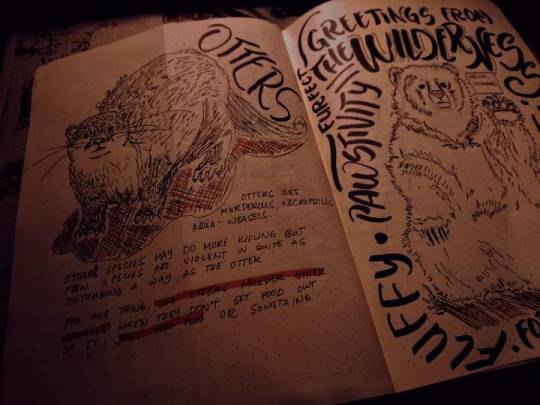 OTTERS
OTTERS ARE
MURDEROUS, NECROPHILIC
AQUA-WEASELS.
OTHER SPECIES MAY DO MORE KILLING, BUT
FEW SPECIES ARE VIOLENT IN QUITE AS
DISTURBING A WAY AS THE OTTER.
FOR ONE THING, SEA OTTERS MURDER OTHER
WHEN THEY DON'T GET FOOD OUT
OF IT, JUST FOR FUN OR SOMETHING.
GREETINGS FROM
THE WILDERNESS
FURFECT
PAWSTIVITY
HELLO
FLUFFY